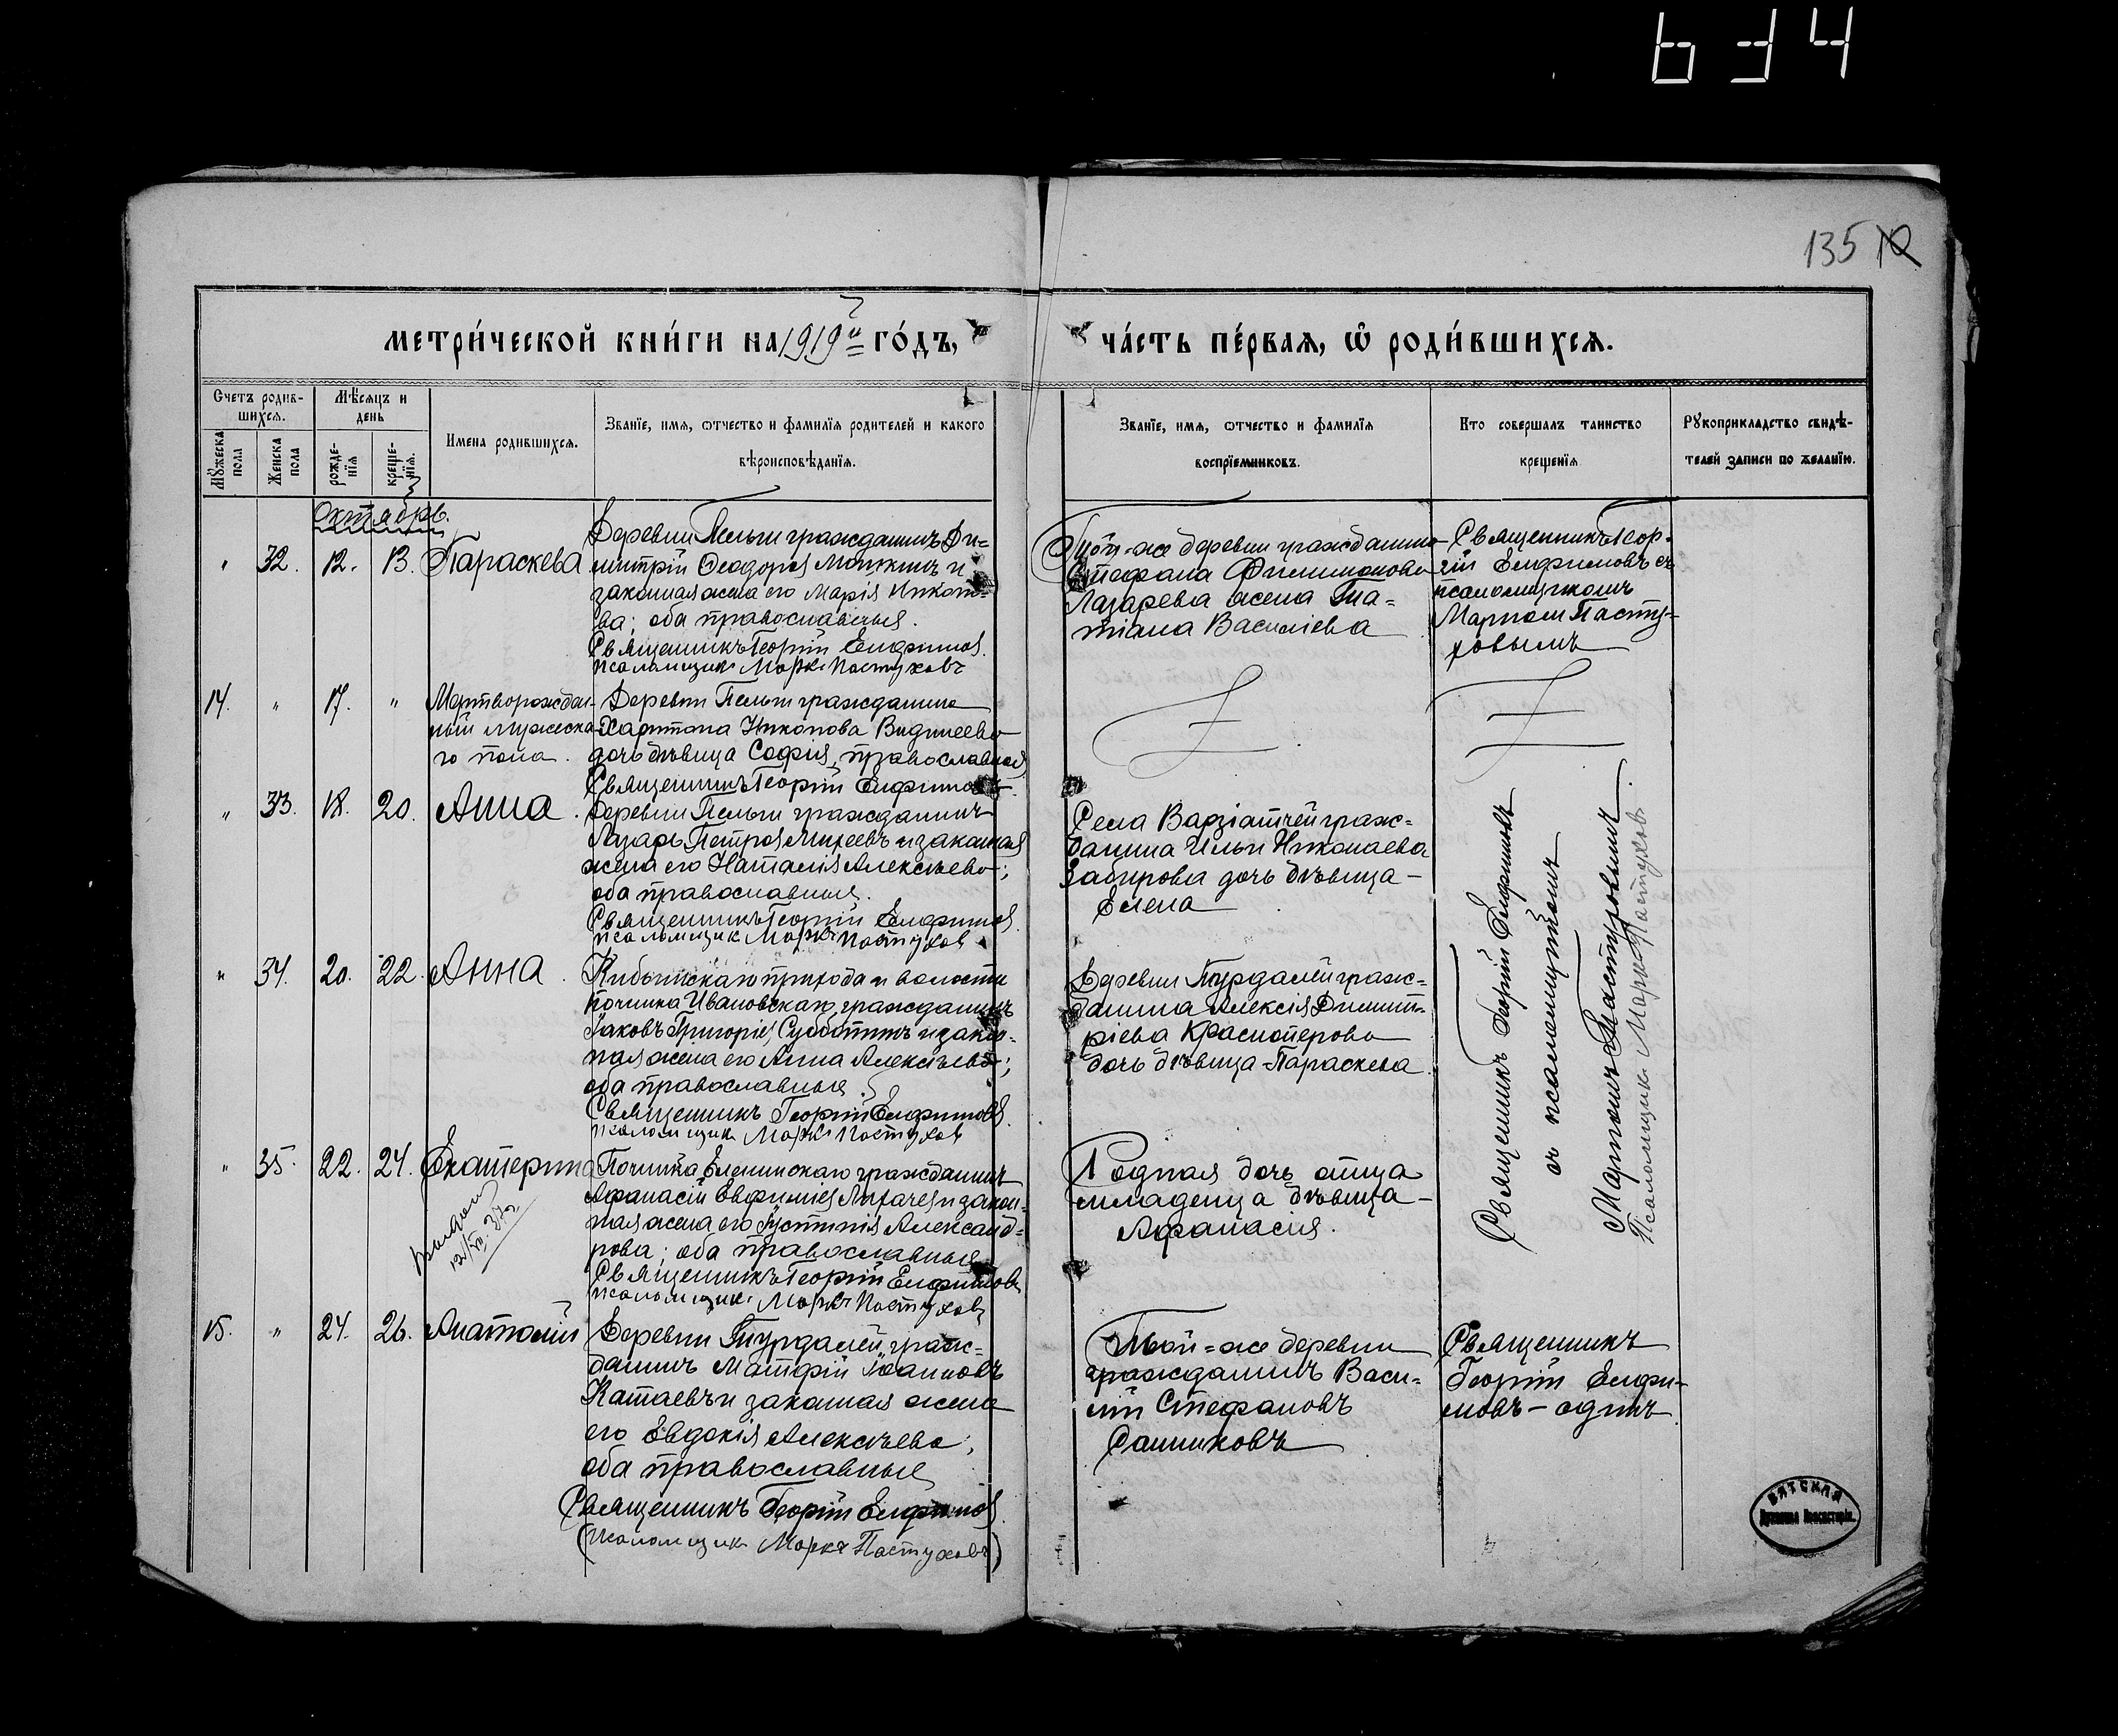 634
135 10
метри́ческой кни́ги на 1919й го́дъ,
ча́сть пе́рвая, ѡ҆ роди́вшихся.
Счетъ родив-
шихся.
Мѣсяцъ и
день
Мꙋжеска
пола
Женска
пола
рожде-
нїя
креще-
нїя.
Имена родившихся.
Званїе, имя, ѿчество и фамилїя родителей и какого
вѣроисповѣданїя.
Званїе, имя, ѿчество и фамилїя
воспрїемниковъ.
Кто совершалъ таинство
крещенїя
Рꙋкоприкладство свидѣ-
телей записи по желанїю.
Октябрь.
" 32. 12. 13. Параскева
Деревни Пельги гражданинъ Ди-
митрій Ѳеодоровъ и
законная жена его Марія Никоно-
ва; оба православныя.
Священникъ Георгій Елфимовъ.
псаломщикъ Маркъ Пастуховъ
Той-же деревни гражданина
Стефана Филимонова
Лазарева жена Та-
тіана Василіева
Священникъ Геор-
гій Елфимовъ съ
псаломщикомъ
Маркомъ Пасту-
ховымъ
14. " 17. " Мертворожден-
ный мужеска-
го пола.
Деревни Пельги гражданина
Харитона Никонова
дочь дѣвица Софія, православная
Священникъ Георгій Елфимовъ.
" 33. 18. 20. Анна.
Деревни Пельги гражданинъ
Лазарь Петровъ Михеевъ и законная
жена его Наталія Алексѣева;
оба православныя.
Священникъ Георгій Елфимовъ.
псаломщик Маркъ Пастухов
Села Варзіатчей граж-
данина Ильи Николаева
Забирова дочь дѣвица -
Елена
" 34. 20. 22. Анна.
прихода и волости
починка Ивановскаго, гражданинъ
Іаковъ Григоріевъ Субботинъ и закон-
ная жена его Анна Алексѣева;
оба православныя.
Священникъ Георгій Елфимовъ.
псаломщик Маркъ Пастухов
Деревни Турдалей граж-
данина Алексія Димит-
ріева Красноперова
дочь дѣвица - Параскева
Священникъ Георгій Елфимовъ
съ псаломщикомъ
Маркомъ Пастуховымъ.
Псаломщикъ Маркъ Пастухов.
" 35. 22. 24. Екатерина
Починка Еленинскаго гражданинъ
Афанасій Евфиміевъ Лихачевъ и закон-
ная жена его Іустинія Александ-
рова; оба православныя
Священникъ Георгій Елфимовъ
псаломщикъ Маркъ Пастуховъ
Родная дочь отца
младенца дѣвица -
Афанасія.
15. " 24. 26. Анатолій
Деревни Турдалей, граж-
данинъ Матфій Іоанновъ
Катаевъ и законная жена
его Евдокія Алексѣева;
оба православныя
Священникъ Георгій Елфимовъ.
(псаломщикъ Маркъ Пастуховъ)
Той-же деревни
гражданинъ Васи-
лій Стефановъ
Санниковъ
Священникъ
Георгій Елфи-
мовъ - одинъ
ВЯТСКАЯ
Духовная Консисторія.